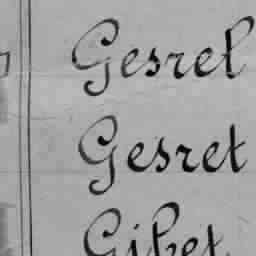 Gesrel
Gesret
Gibet